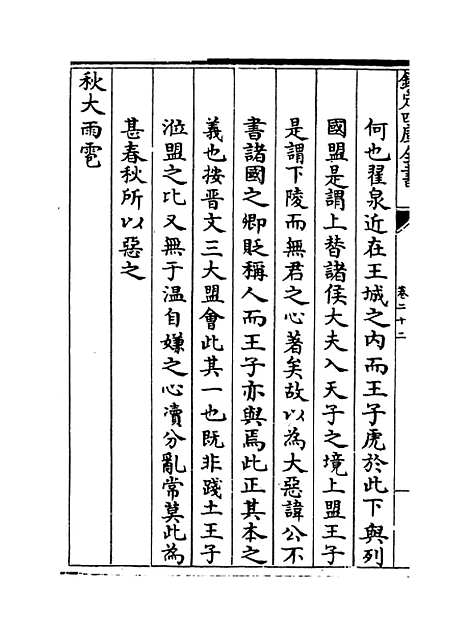 欽定四庫全書
卷二十二
何也翟泉近在王城之内而王子虎於此下與列
國盟是謂上替諸侯大夫入天子之境上盟王子
是謂下陵而無君之心著矣故以為大惡諱公不
書諸國之卿貶稱人而王子亦與焉此正其本之
義也按晋文三大盟會此其一也既非踐土王子
涖盟之比又無于温自嫌之心凟分亂常莫此為
甚春秋所以惡之
秋大雨雹